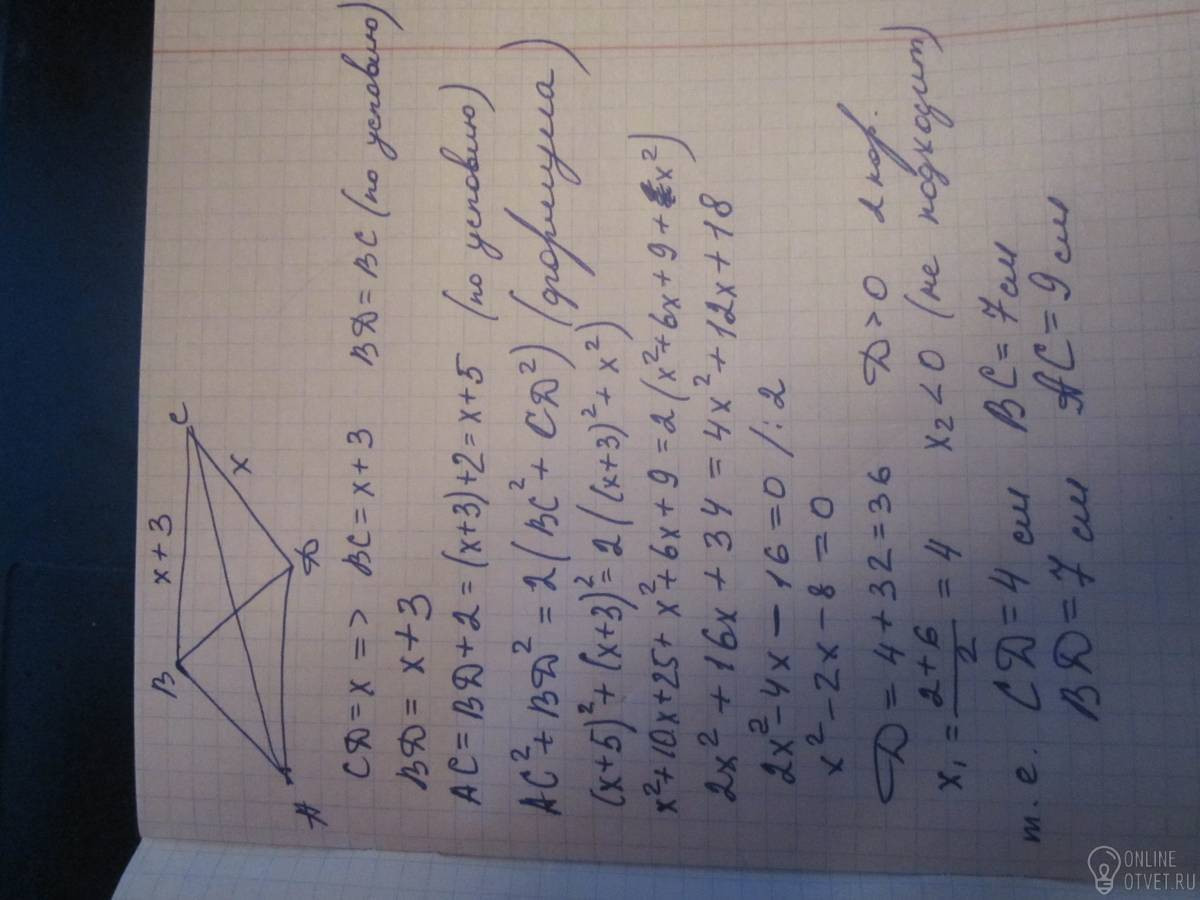 B
x + 3
C
x
A
D
CD = x => BC = x + 3 BD = BC (по условию)
BD = x + 3
AC = BD + 2 = (x+3)+2 = x+5 (по условию)
AC² + BD² = 2(BC² + CD²) (формула)
(x+5)² + (x+3)² = 2((x+3)² + x²)
x² + 10x + 25 + x² + 6x + 9 = 2(x² + 6x + 9 + x²)
2x² + 16x + 34 = 4x² + 12x + 18
2x² - 4x - 16 = 0 /: 2
x² - 2x - 8 = 0
D = 4 + 32 = 36 D > 0 2 кор.
x₁ = (2+6)/2 = 4 x₂ < 0 (не подходит)
т.е. CD = 4 см BC = 7 см
BD = 7 см AC = 9 см
ONLINE
OTVET.RU